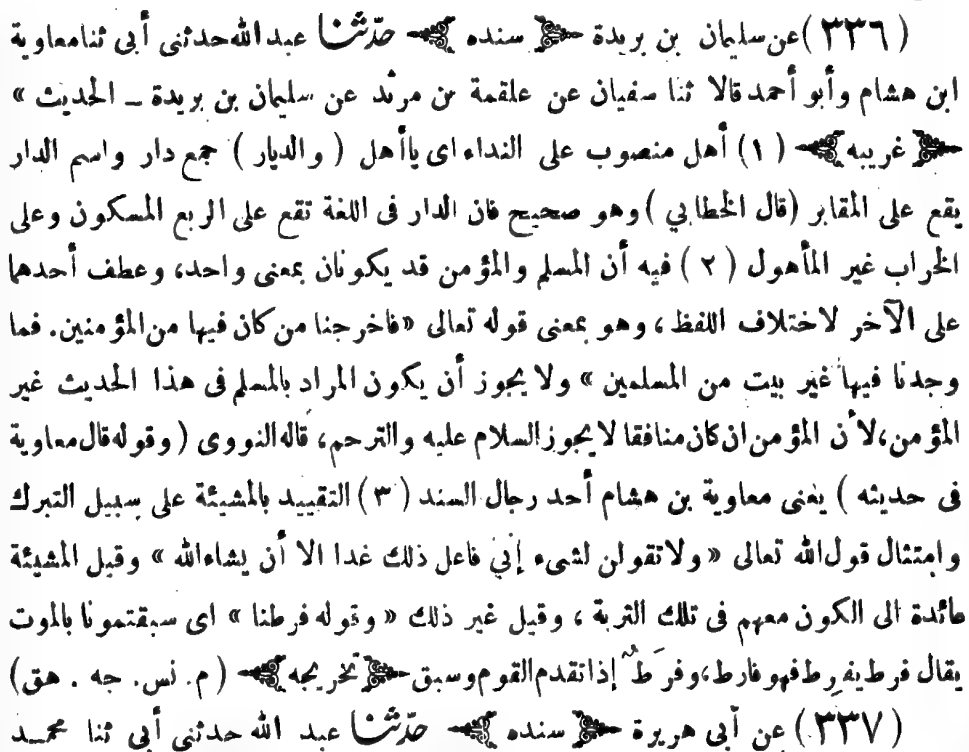 (٣٣٦) عن سليمان بن بريدة ﴿ سنده ﴾ حدّثنا عبد الله حدثنى أبى ثنا معاوية
ابن هشام وأبو أحمد قالا ثنا سفيان عن علقمة بن مرثد عن سليمان بن بريدة ــ الحديث »
﴿ غريبه ﴾ (١) أهل منصوب على النداء اى ياأهل ( والديار ) جمع دار واسم الدار
يقع على المقابر (قال الخطابي ) وهو صحيح فان الدار فى اللغة تقع على الربع المسكون وعلى
الخراب غير المأهول (٢) فيه أن المسلم والمؤمن قد يكونان بمعنى واحد، وعطف أحدهما
على الآخر لاختلاف اللفظ، وهو بمعنى قوله تعالى «فاخرجنا من كان فيها من المؤمنين. فما
وجدنا فيها غير بيت من المسلمين » ولا يجوز أن يكون المراد بالمسلم فى هذا الحديث غير
المؤمن، لأن المؤمن ان كان منافقا لا يجوز السلام عليه والترحم، قاله النووى ( وقوله قال معاوية
فى حديثه ) يعنى معاوية بن هشام أحد رجال السند (٣) التقييد بالمشيئة على سبيل التبرك
وامتثال قول الله تعالى « ولا تقولن لشىء إني فاعل ذلك غدا الا أن يشاء الله » وقيل المشيئة
عائدة الى الكون معهم فى تلك التربة ، وقيل غير ذلك « وقوله فرطنا » اى سبقتمونا بالموت
يقال فرط يفرط فهو فارط، وفرَطٌ إذا تقدم القوم وسبق ﴿ تخريجه ﴾ (م. نس. جه. هق)
(٣٣٧) عن أبى هريرة ﴿ سنده ﴾ حدّثنا عبد الله حدثنى أبى ثنا محمـد